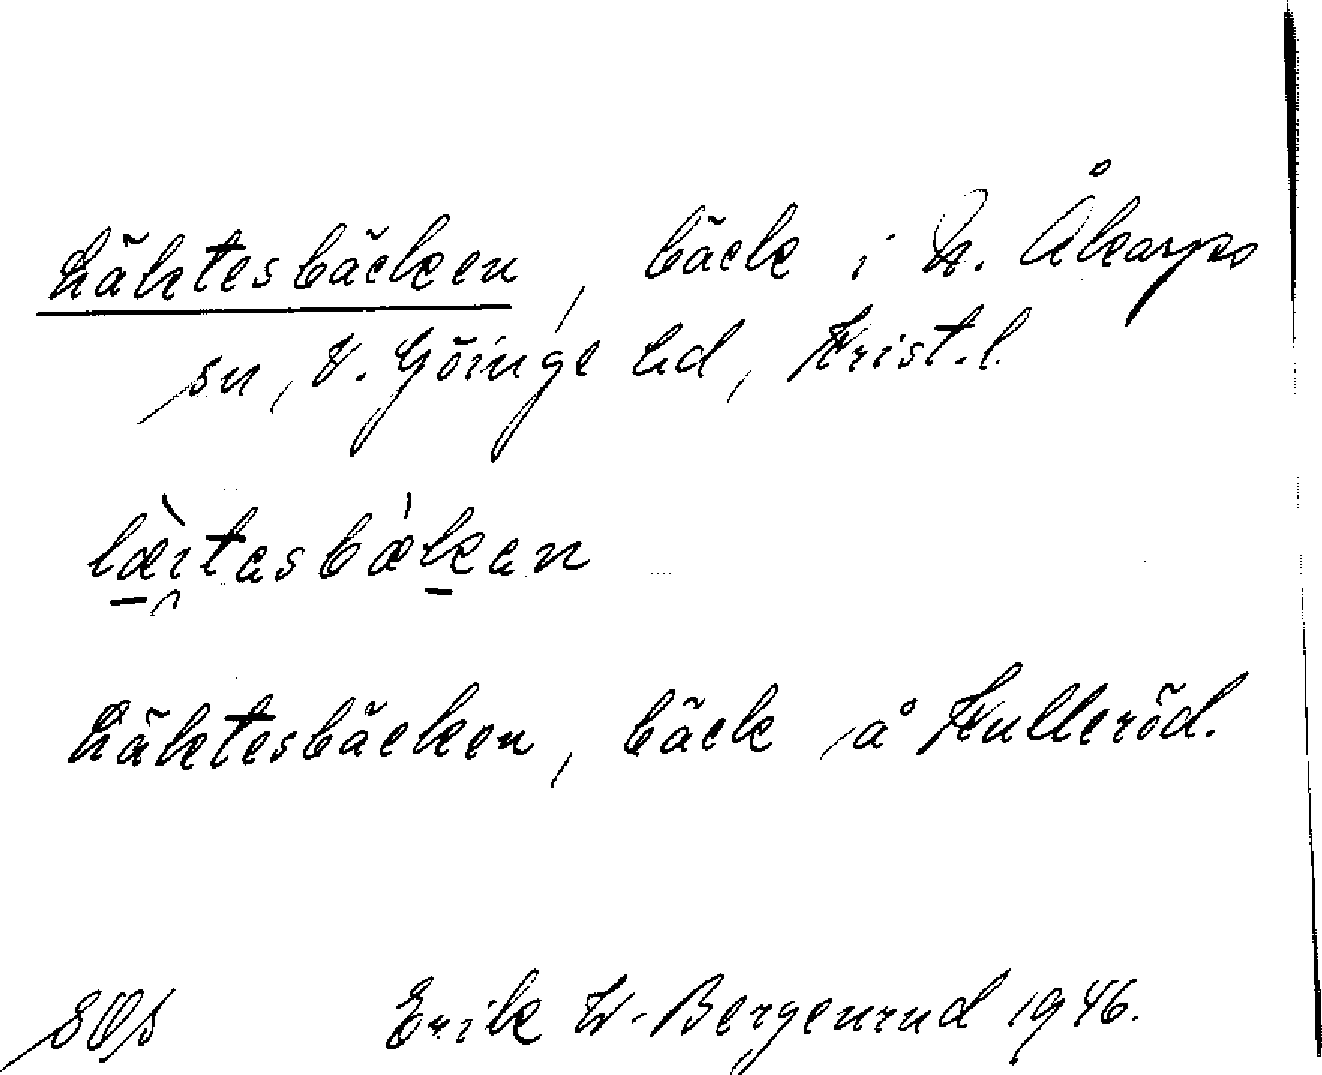 Läktesbäcken, bäck i N. Åkarps
sn, V. Göinge hd, Krist. l.
læ̀i̯tasbæ̀kan
Läktesbäcken, bäck å Hulleröd.
Erik W. Bergenrud 1946.